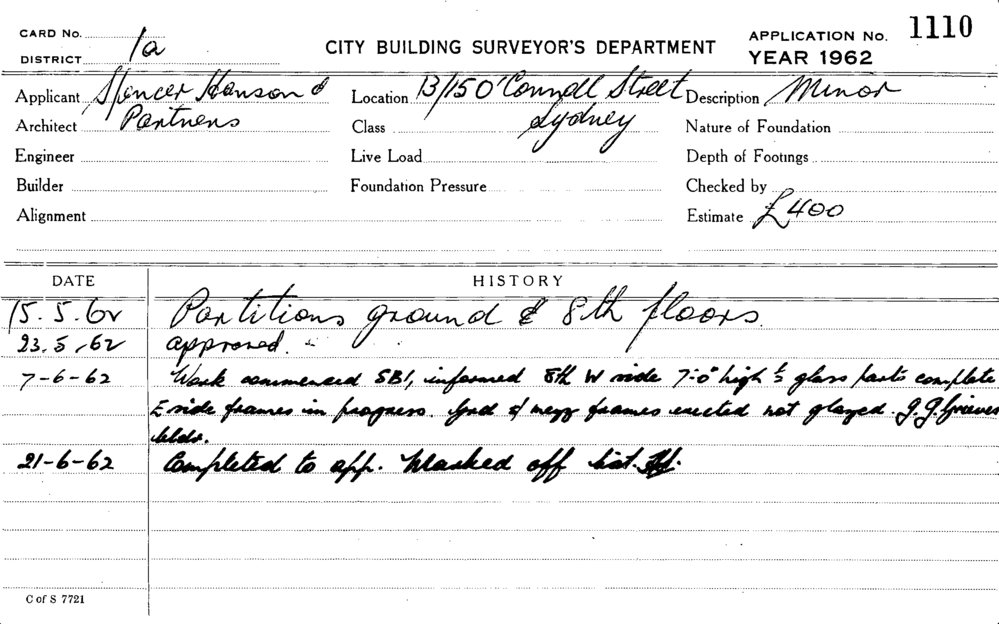 CARD No.
DISTRICT 1a
CITY BUILDING SURVEYOR'S DEPARTMENT
APPLICATION No. 1110
YEAR 1962
Applicant Spencer Hanson &
Architect Partners
Engineer
Builder
Alignment
Location 13/15 O'Connell Street
Class Sydney
Live Load
Foundation Pressure
Description Minor
Nature of Foundation
Depth of Footings
Checked by
Estimate £400
DATE HISTORY
15.5.62 Partitions ground & 8th floors.
23.5.62 approved.
7-6-62 Work commenced SBI, informed 8th W side 7'-0" high ½ glass parts complete
E side frames in progress. Grnd & mezz frames erected not glazed. J.J. Grieves
bldr.
21-6-62 Completed to app. Marked off list.
C of S 7721